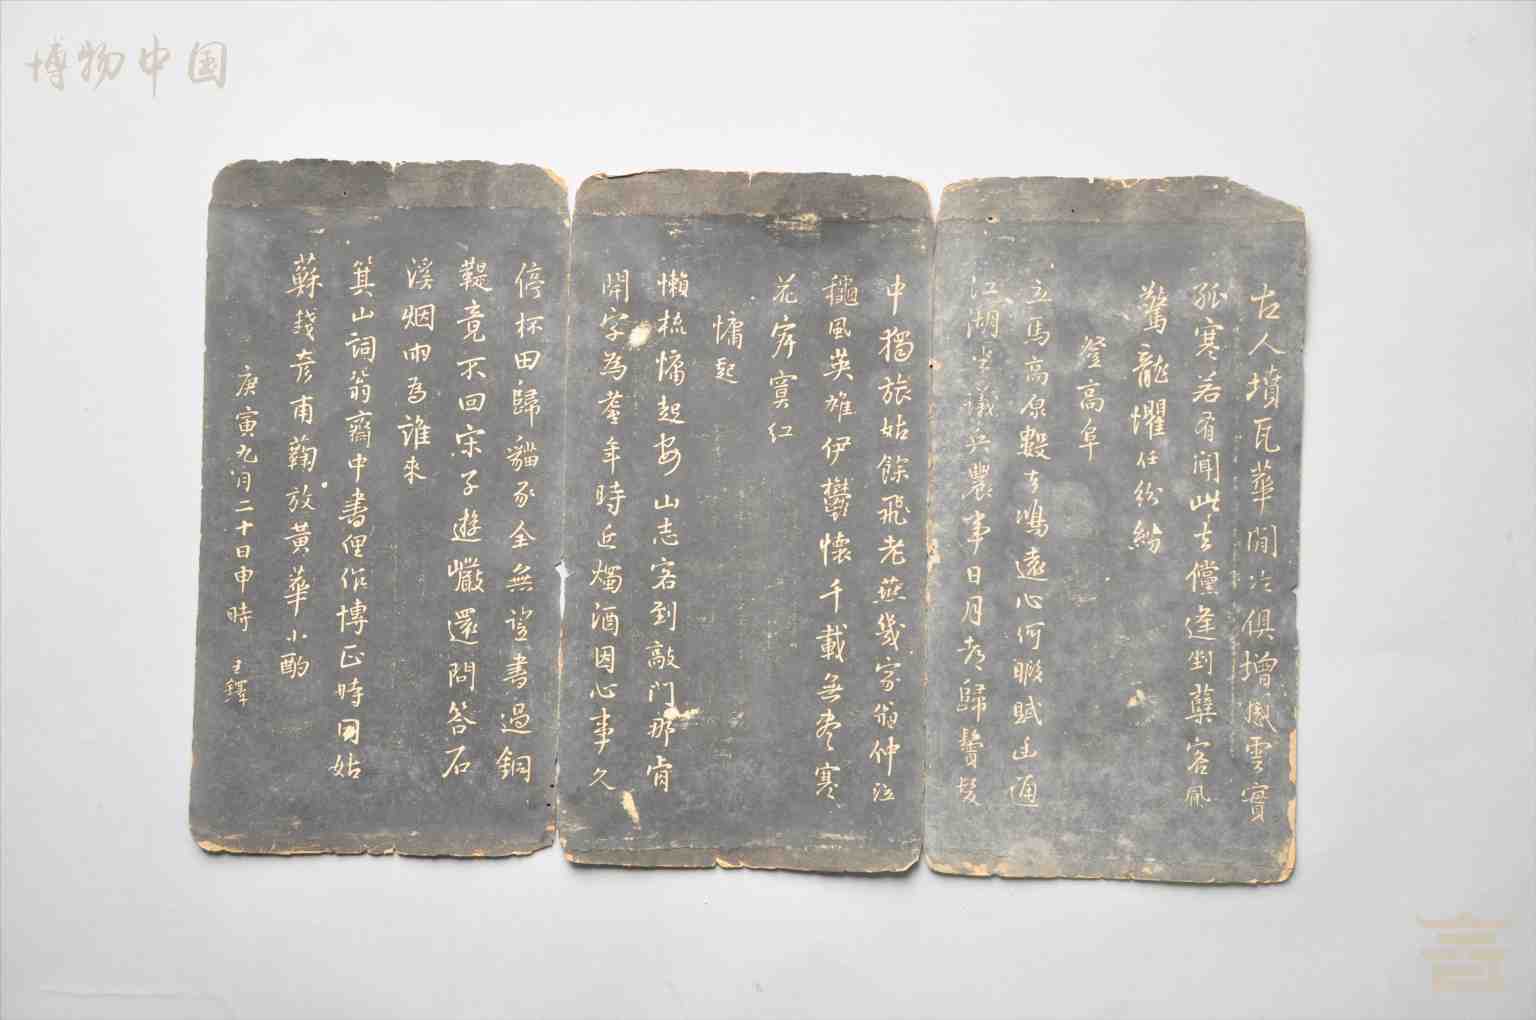 博物中国
古人墳瓦華間冷俱增風雲實
孤寒若有聞此去儻逢剉蘖客佩
驚龍懼任紛紛
登高阜
立馬高原數去鳴遠心何暇賦幽通
江湖半議兵農事日月老歸鬢髮
中獨旅姑餘飛老燕幾家翁仲泣
穐風英雄伊鬱懷千載無盡寒
花寂寞紅
慵起
懶梳慵起安山志客到敲門那肯
開字為耄年時近燭酒因心事久
停杯田歸貓豕全無證書過銅
鞮竟不回宋子遊巖還問答石
溪烟雨為誰來
箕山詞翁齋中書俚作博正時同姑
蘇錢彥甫蘜放黃華小酌
庚寅九月二十日申時 王鐸